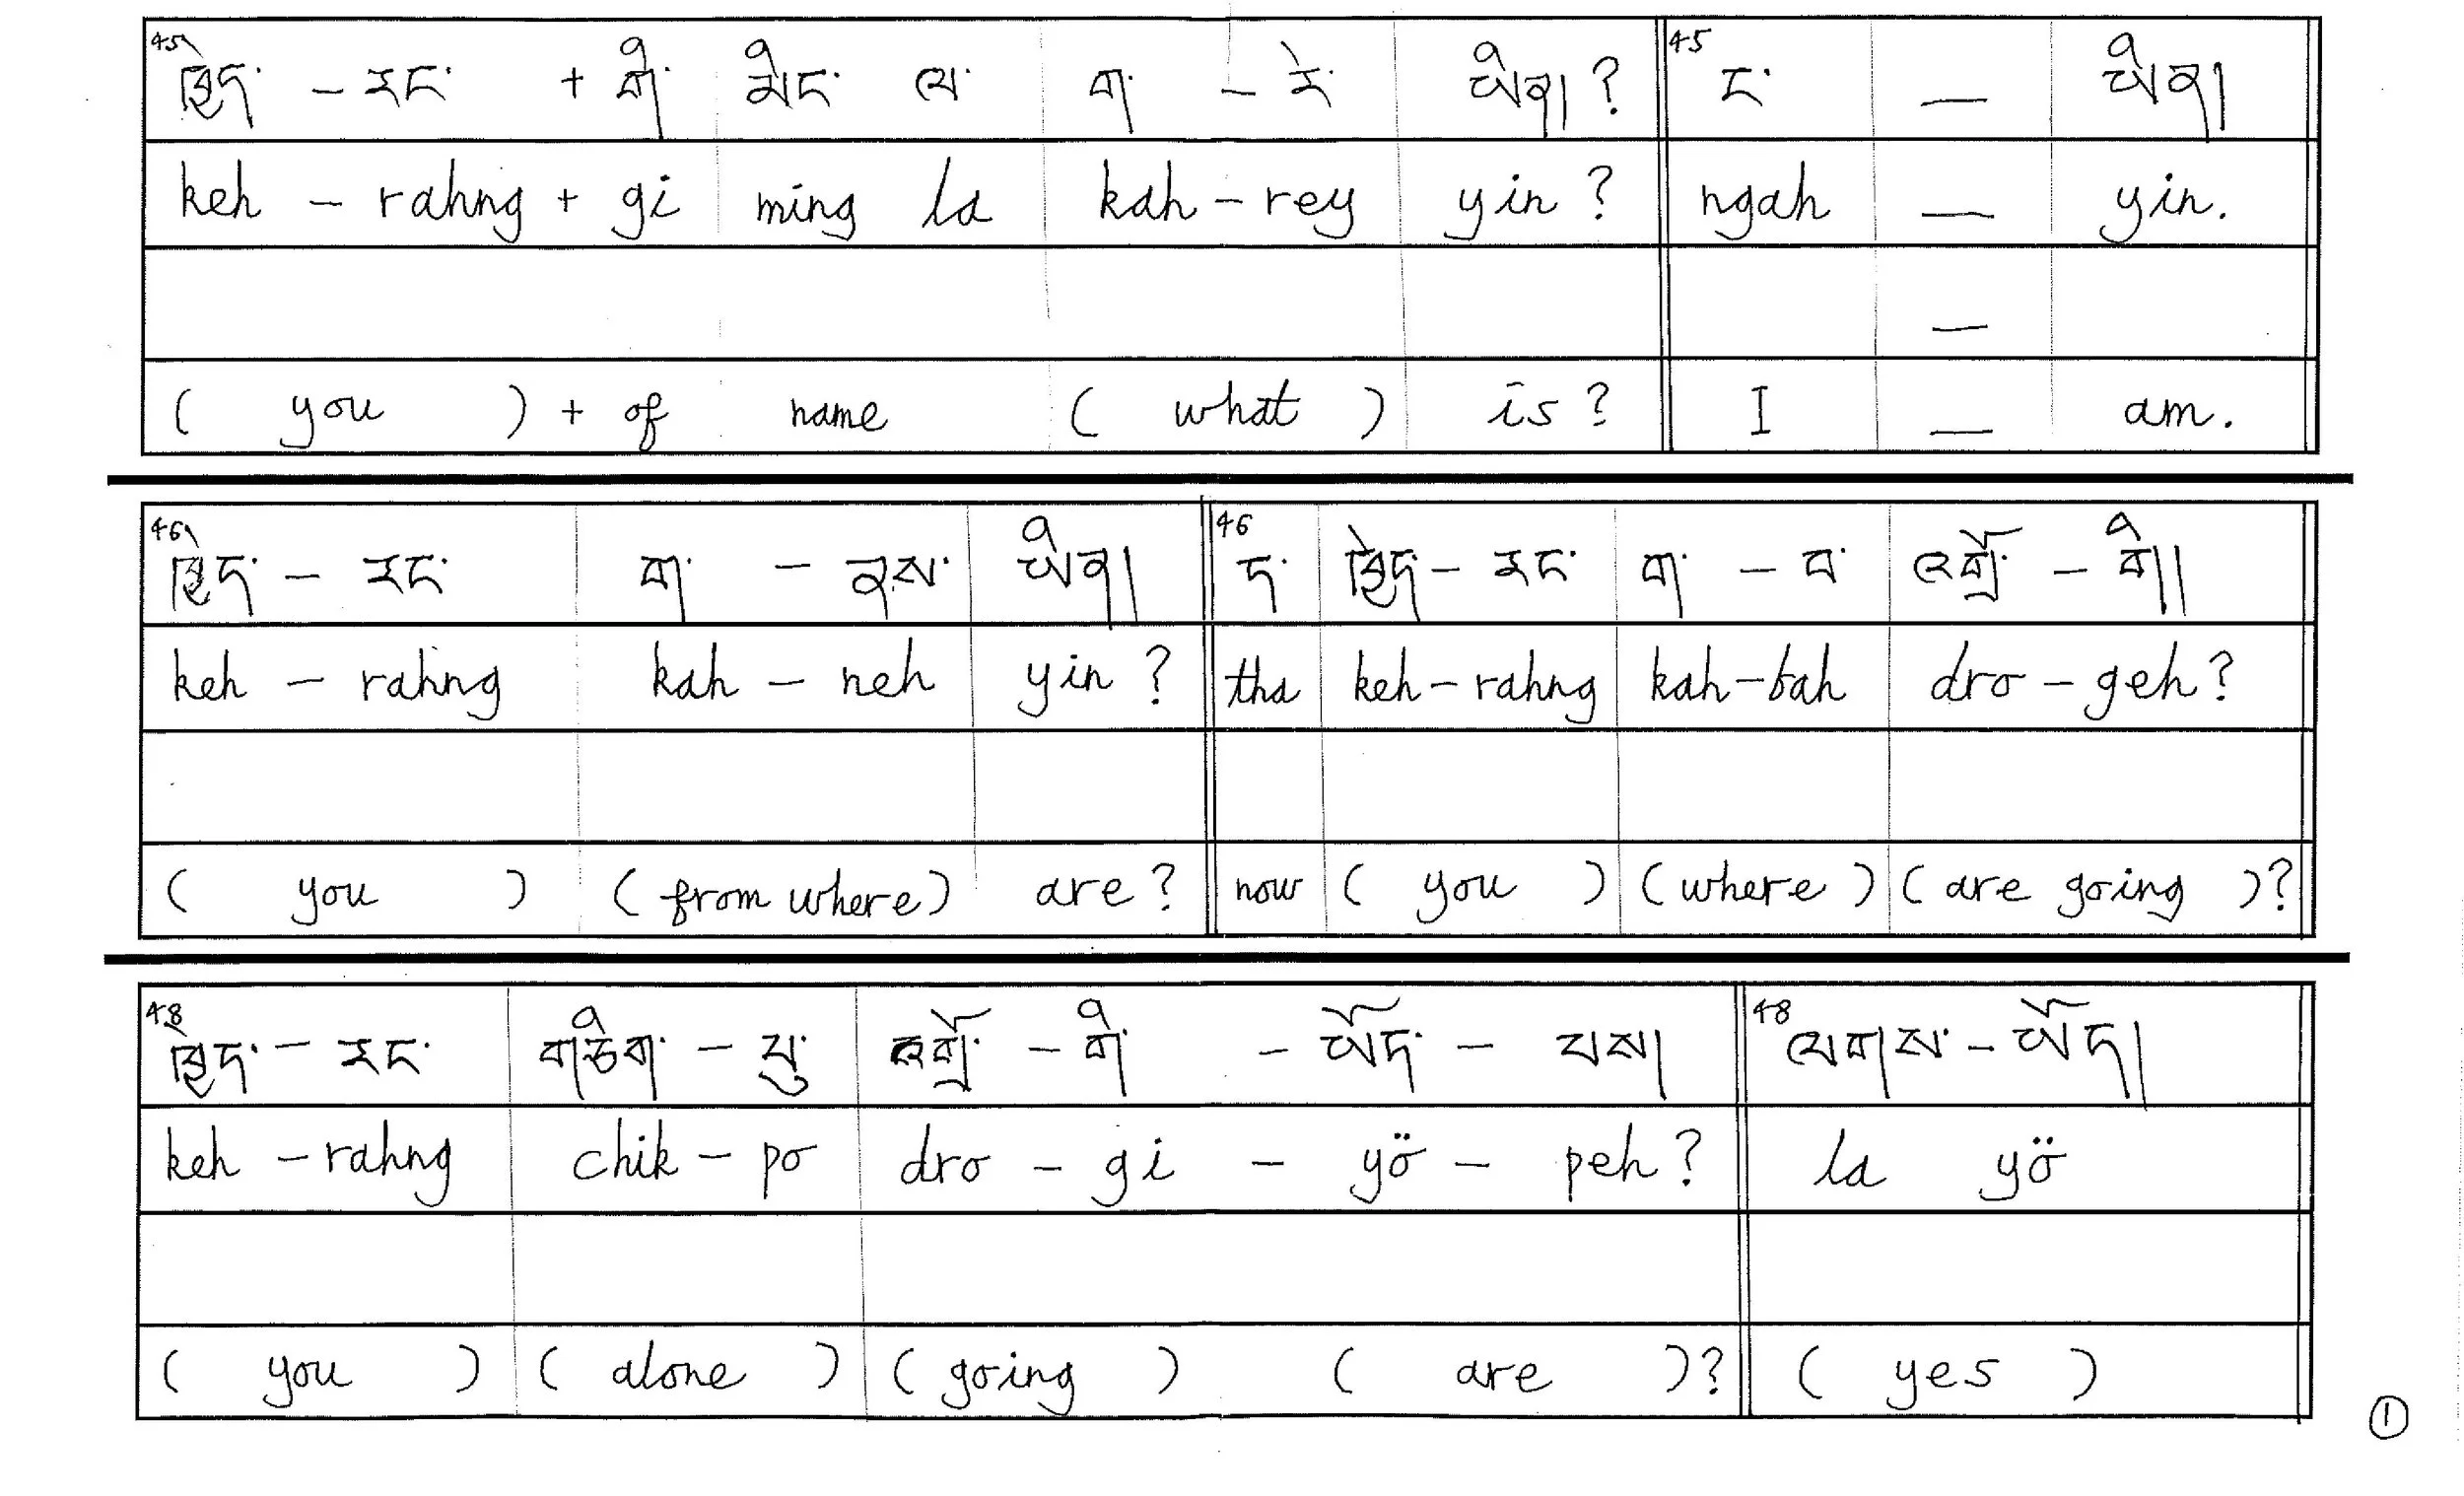 45 ཁྱེད་ – རང་ + གི་ མིང་ ལ་ ག་ – རེ་ ཡིན། ? 45 ང་ — ཡིན།
keh – rahng + gi ming la kah – rey yin ? ngah — yin.
—
( you ) + of name ( what ) is ? I — am.
46 ཁྱེད་ – རང་ ག་ – ནས་ ཡིན། 46 ད་ ཁྱེད་ – རང་ ག་ – བ་ འགྲོ་ – གི།
keh – rahng kah – neh yin ? tha keh – rahng kah – bah dro – geh ?
( you ) ( from where ) are ? now ( you ) ( where ) ( are going ) ?
48 ཁྱེད་ – རང་ གཅིག་ – པུ་ འགྲོ་ – གི་ – ཡོད་ – པས། 48 ལགས་ – ཡོད།
keh – rahng chik – po dro – gi – yö – peh ? la yö
( you ) ( alone ) ( going ) ( are ) ? ( yes )
1